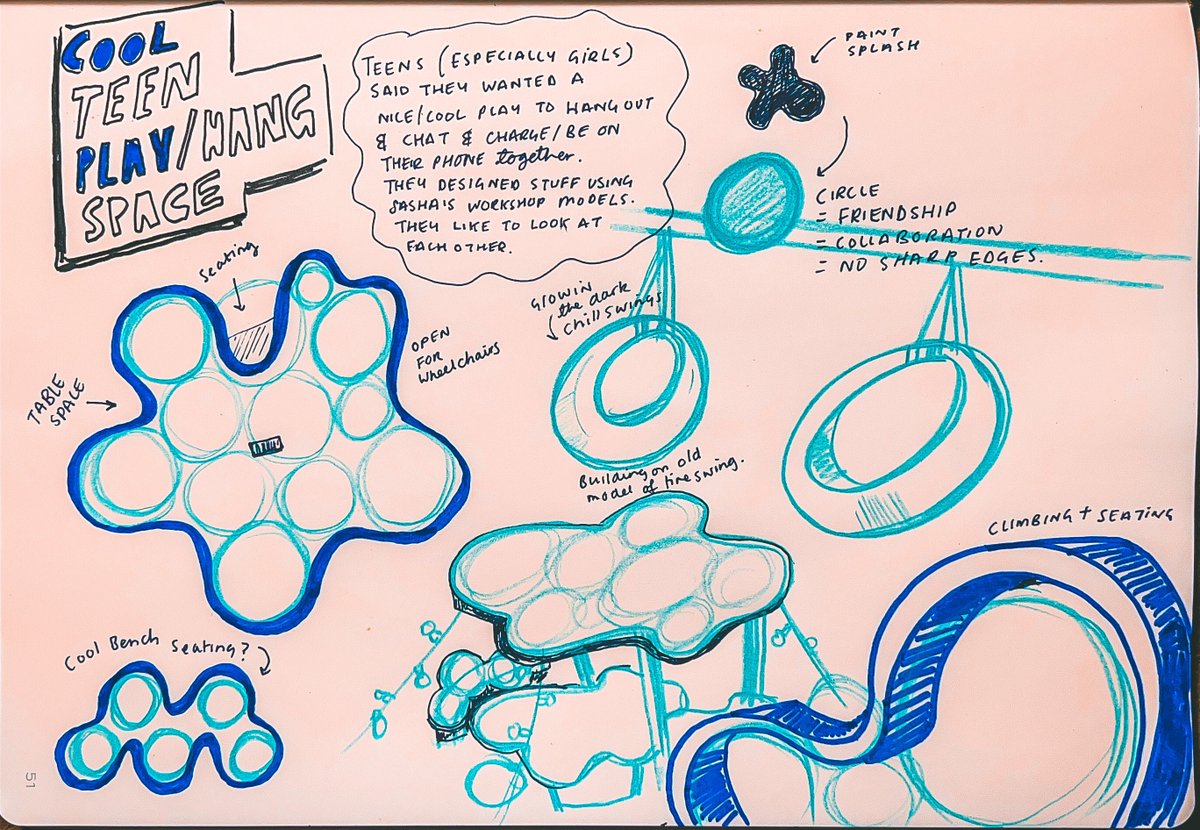 COOL
TEEN
PLAY/HANG
SPACE
TEENS (ESPECIALLY GIRLS)
SAID THEY WANTED A
NICE/COOL PLAY TO HANG OUT
& CHAT & CHARGE/BE ON
THEIR PHONE together.
THEY DESIGNED STUFF USING
SASHA'S WORKSHOP MODELS.
THEY LIKE TO LOOK AT
EACH OTHER.
PAINT
SPLASH
CIRCLE
= FRIENDSHIP
= COLLABORATION
= NO SHARP EDGES.
Seating
OPEN
FOR
Wheelchairs
TABLE
SPACE
GLOW IN
the dark
Chill swings
Building on old
model of tire swing.
CLIMBING + SEATING
Cool Bench seating?
51